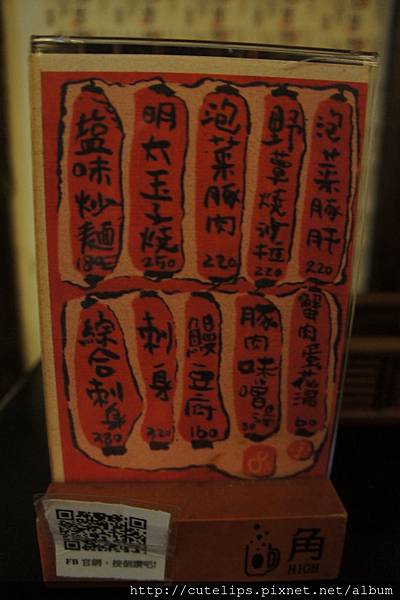 泡菜豚肝
220
野蕈燒沙拉
220
泡菜豚肉
220
明太王子燒
250
塩味炒麵
180
蟹肉蛋花湯
60
豚肉味噌湯
鰻豆府
160
刺身
320
綜合刺身
380
角
HIGH
FB 官網，按個讚吧!
http://cutelips.pixnet.net/album